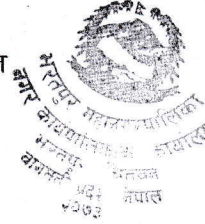 भरतपुर महानगरपालिका
नगर कार्यपालिकाको कार्यालय
भरतपुर चितवन
बागमती प्रदेश नेपाल
२०७३